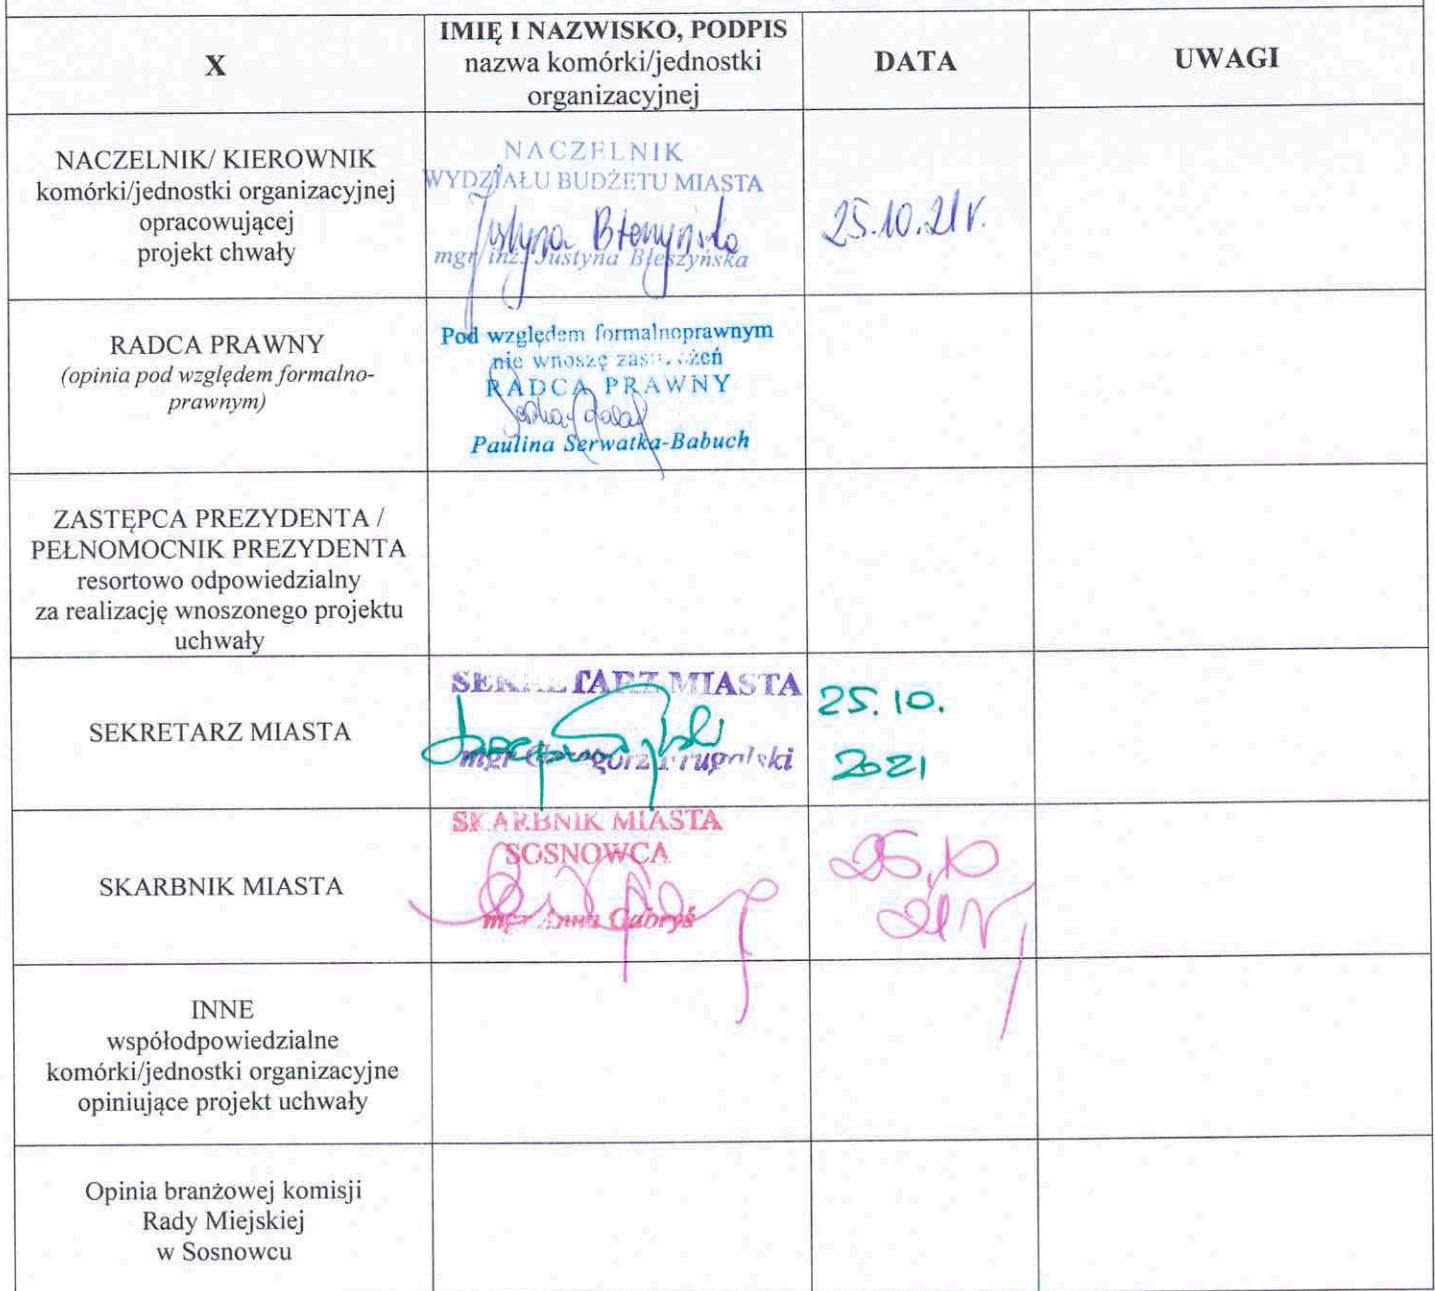 X
IMIĘ I NAZWISKO, PODPIS
nazwa komórki/jednostki
organizacyjnej
DATA
UWAGI
NACZELNIK/ KIEROWNIK
komórki/jednostki organizacyjnej
opracowującej
projekt chwały
NACZELNIK
WYDZIAŁU BUDŻETU MIASTA
Justyna Błeszyńska
mgr inż. Justyna Błeszyńska
25.10.21r.
RADCA PRAWNY
(opinia pod względem formalno-
prawnym)
Pod względem formalnoprawnym
nie wnoszę zastrzeżeń
RADCA PRAWNY
Paulina Serwatka-Babuch
ZASTĘPCA PREZYDENTA /
PEŁNOMOCNIK PREZYDENTA
resortowo odpowiedzialny
za realizację wnoszonego projektu
uchwały
SEKRETARZ MIASTA
SEKRETARZ MIASTA
mgr
25.10.
2021
SKARBNIK MIASTA
SKARBNIK MIASTA
SOSNOWCA
mgr Anna Gabryś
25.10
21r,
INNE
współodpowiedzialne
komórki/jednostki organizacyjne
opiniujące projekt uchwały
Opinia branżowej komisji
Rady Miejskiej
w Sosnowcu